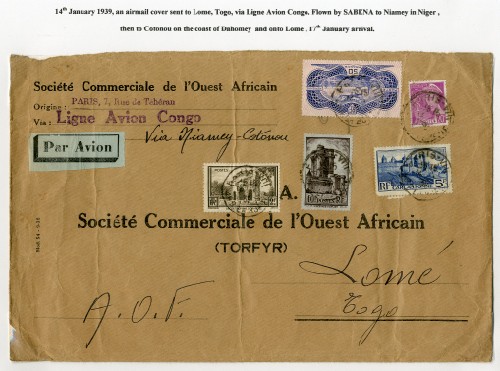 14th January 1939, an airmail cover sent to Lome, Togo, via Ligne Avion Congo. Flown by SABENA to Niamey in Niger ,
then to Cotonou on the coast of Dahomey and onto Lome , 17th January arrival.
Société Commerciale de l'Ouest Africain
Origine : PARIS, 7, Rue de Téhéran
Via : Ligne Avion Congo
Via Niamey-Cotonou
Par Avion
A.
Société Commerciale de l'Ouest Africain
(TORFYR)
Lomé
A.O.F.
Togo